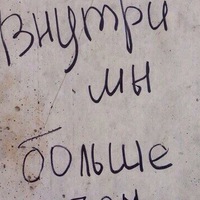 Внутри
мы
больше